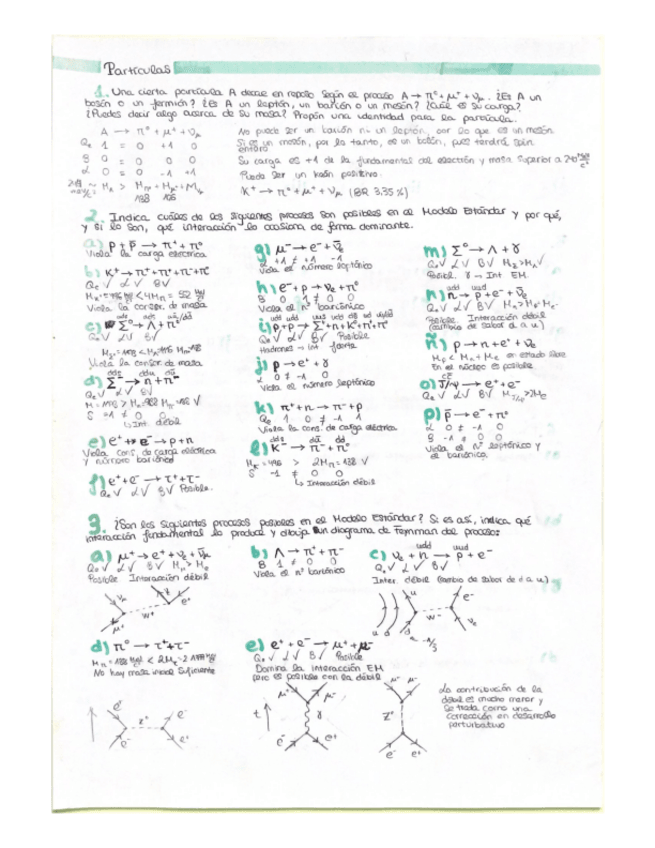 Partículas
1. Una cierta partícula A decae en reposo según el proceso A → π⁰ + μ⁺ + νμ. ¿Es A un
bosón o un fermión? ¿Es A un leptón, un barión o un mesón? ¿Cuál es su carga?
¿Puedes decir algo acerca de su masa? Propón una identidad para la partícula.
A → π⁰ + μ⁺ + νμ
Qe 1 = 0 +1 0
B 0 = 0 0 0
L 0 = 0 -1 +1
MA > Mπ + Mμ + Mν
138 106
No puede ser un barión ni un leptón, por lo que es un mesón.
Si es un mesón, por lo tanto, es un bosón, pues tendrá spin
entero
Su carga es +1 de la fundamental del electrón y masa superior a
Puede ser un kaón positivo.
K⁺ → π⁰ + μ⁺ + νμ (BR 3,35%)
2. Indica cuáles de los siguientes procesos son posibles en el Modelo Estándar y por qué,
y si lo son, qué interacción lo ocasiona de forma dominante.
a) p + p̄ → π⁺ + π⁰
Viola la carga eléctrica
b) K⁺ → π⁺ + π⁺ + π⁻ + π⁰
Qe √ L √ B √
Viola la conser. de masa
c) Σ⁰ → Λ + π⁰
Qe √ L √ B √
Viola la conser de masa
d) Σ⁻ → n + π⁻
Qe √ L √ B √
S -1 ≠ 0 0
↳ Int. débil
e) e⁺ + e⁻ → p + n
Viola cons. de carga eléctrica
y número bariónico
f) e⁺ + e⁻ → τ⁺ + τ⁻
Qe √ L √ B √ Posible.
g) μ⁻ → e⁻ + ν̄e
L +1 ≠ +1 -1
Viola el número leptónico
h) e⁻ + p → νe + π⁰
B 0 1 ≠ 0 0
Viola el nº bariónico
i) p + p → Σ⁺ + n + K⁰ + π⁺ + π⁰
Qe √ L √ B √ Posible
Hadrones → int fuerte
j) p → e⁺ + γ
L 0 ≠ -1 0
Viola el número leptónico
k) π⁺ + n → π⁻ + p
Qe 1 0 ≠ -1 1
Viola la cons. de carga eléctrica
l) K⁻ → π⁻ + π⁰
S -1 ≠ 0 0
↳ Interacción débil
m) Σ⁰ → Λ + γ
Qe √ L √ B √ MΣ > MΛ √
Posible. γ → Int EM.
n) n → p + e⁻ + ν̄e
Posible. Interacción débil
(cambio de sabor d a u)
ñ) p → n + e⁺ + νe
Mp < Mn + Me en estado libre
En el núcleo es posible
o) J/ψ → e⁺ + e⁻
Qe √ L √ B √
p) p̄ → e⁻ + π⁰
L 0 ≠ -1 0
B -1 ≠ 0 0
Viola el nº leptónico y
el bariónico.
3. ¿Son los siguientes procesos posibles en el Modelo Estándar? Si es así, indica qué
interacción fundamental lo produce y dibuja un diagrama de Feynman del proceso:
a) μ⁺ → e⁺ + νe + ν̄μ
Qe √ L √ B √ Mμ > Me
Posible Interacción débil
W⁺
b) Λ → π⁺ + π⁻
B 1 ≠ 0 0
Viola el nº bariónico
c) νe + n → p + e⁻
Qe √ L √ B √
Inter. débil (cambio de sabor de d a u)
W⁻
d) π⁰ → τ⁺ + τ⁻
No hay masa inicial suficiente
Z⁰
e) e⁺ + e⁻ → μ⁺ + μ⁻
Qe √ L √ B √ Posible
Domina la interacción EM
pero es posible con la débil
t γ
Z⁰
La contribución de la
débil es mucho menor y
se trata como una
corrección en desarrollo
perturbativo